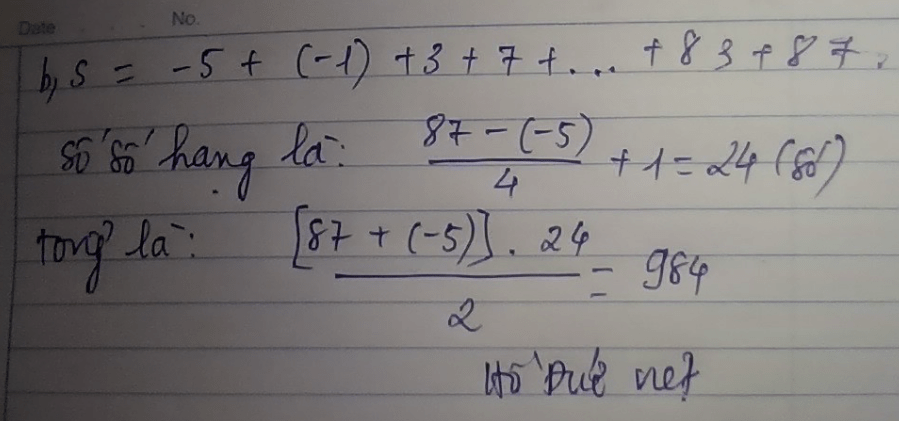 Date No.
b, S = -5 + (-1) + 3 + 7 + ... + 83 + 87.
số số hạng là: \frac{87 - (-5)}{4} + 1 = 24 (số)
tổng là: \frac{[87 + (-5)] . 24}{2} = 984
Hồ Đức